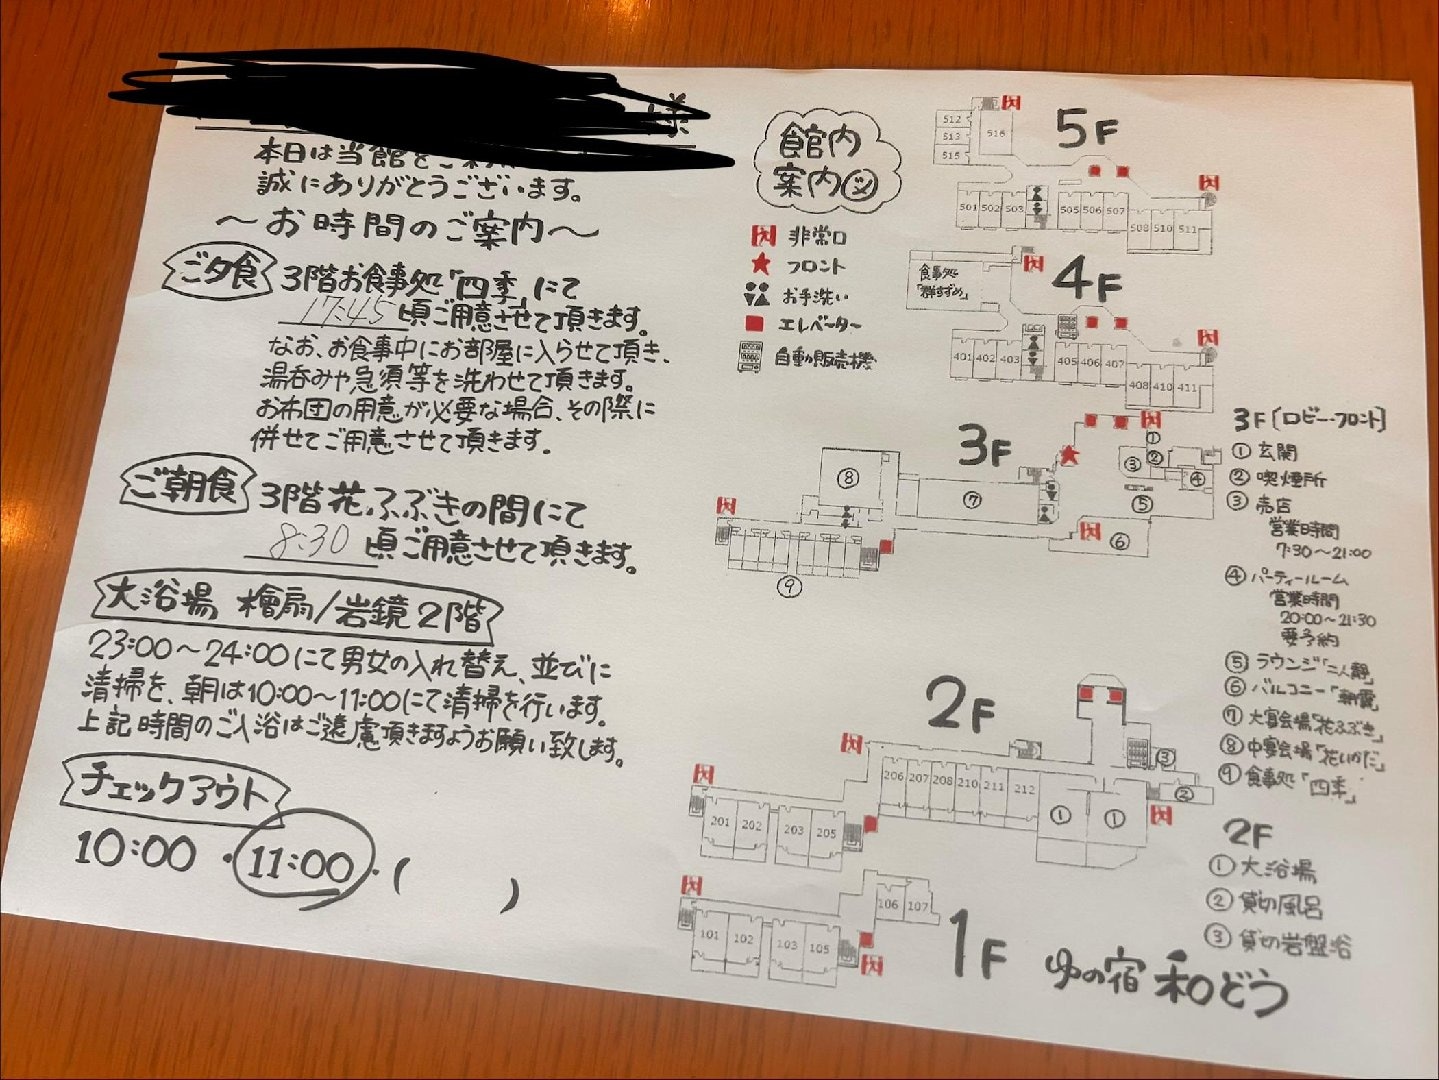 様
本日は当館をご利
誠にありがとうございます。
～お時間のご案内～
ご夕食
3階お食事処「四季」にて
17:45 頃ご用意させて頂きます。
なお、お食事中にお部屋に入らせて頂き、
湯呑みや急須等を洗わせて頂きます。
お布団の用意が必要な場合、その際に
併せてご用意させて頂きます。
ご朝食
3階花ふぶきの間にて
8:30 頃ご用意させて頂きます。
大浴場 檜扇/岩鏡 2階
23:00～24:00にて男女の入れ替え、並びに
清掃を、朝は10:00～11:00にて清掃を行います。
上記時間のご入浴はご遠慮頂きますようお願い致します。
チェックアウト
10:00 ・ 11:00 ・ (    )
館内
案内図
非常口
フロント
お手洗い
エレベーター
自動販売機
5F
512
513
515
516
501 502 503 505 506 507 508 510 511
4F
食事処
「群すずめ」
401 402 403 405 406 407 408 410 411
3F
① ② ③ ④ ⑤ ⑥ ⑦ ⑧ ⑨
3F[ロビー・フロント]
①玄関
②喫煙所
③売店
営業時間
7:30～21:00
④パーティールーム
営業時間
20:00～21:30
要予約
⑤ラウンジ「二人静」
⑥バルコニー「朝霞」
⑦大宴会場「花ふぶき」
⑧中宴会場「花いかだ」
⑨食事処「四季」
2F
206 207 208 210 211 212
① ① ② ③
201 202 203 205
2F
①大浴場
②貸切風呂
③貸切岩盤浴
1F
106 107
101 102 103 105
ゆの宿 和どう